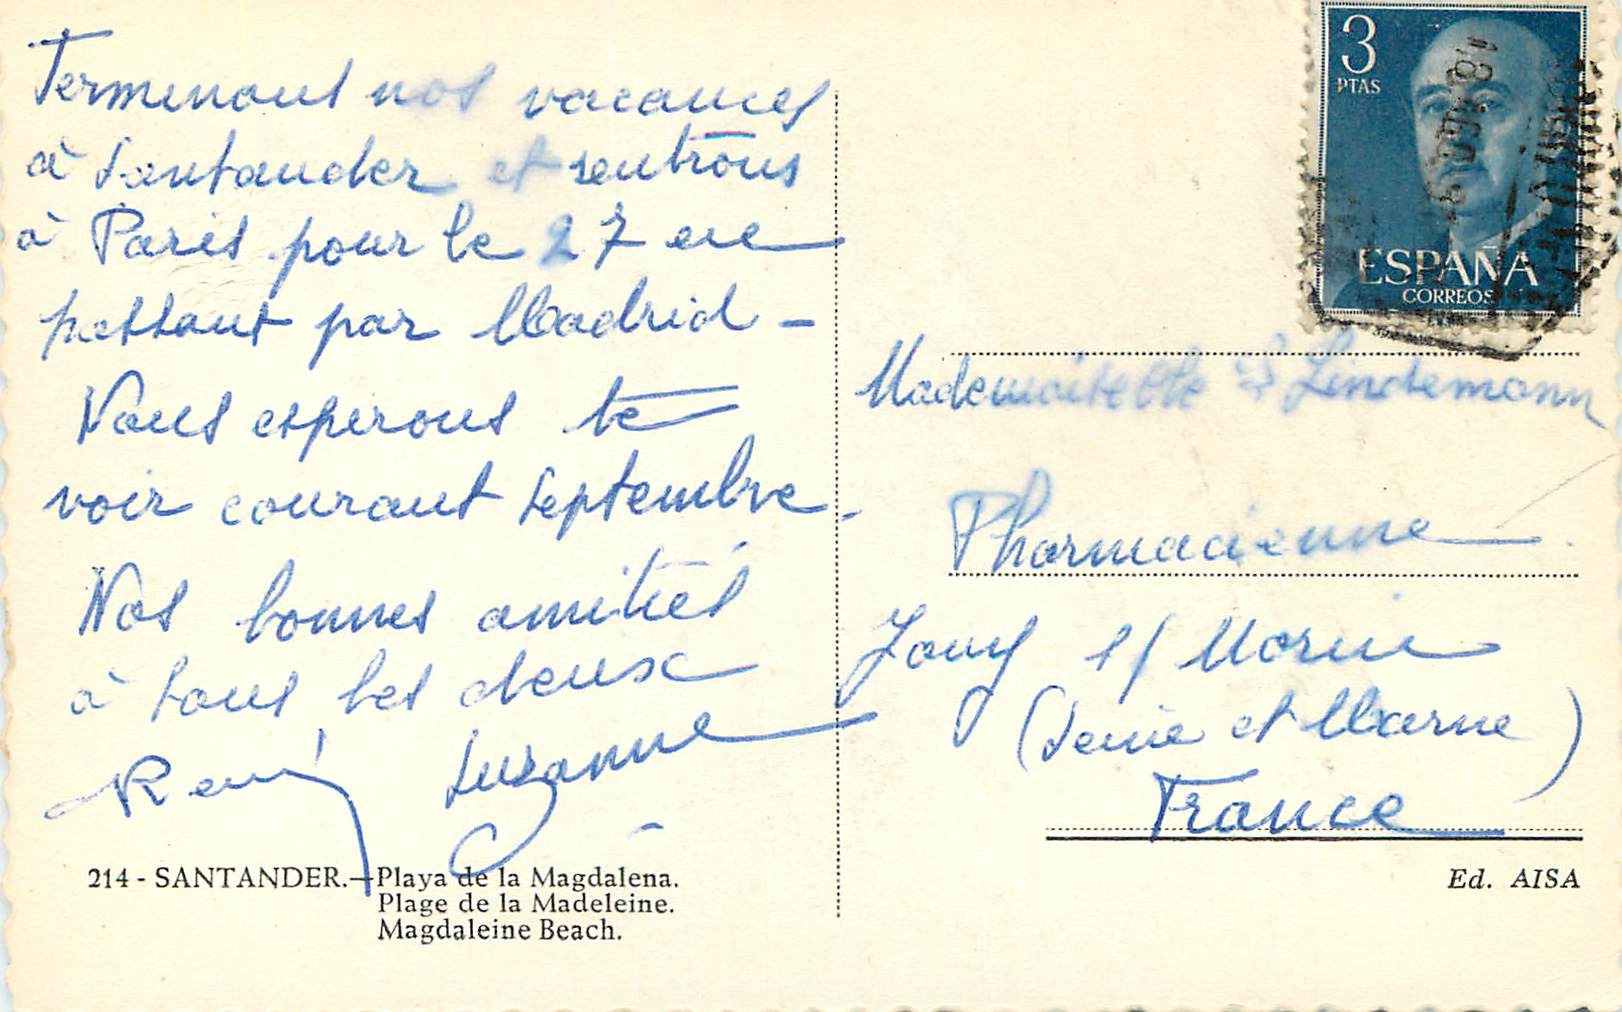 Terminons nos vacances
à Santander et rentrons
à Paris pour le 27 en
passant par Madrid -
Nous esperons te
voir courant septembre.
Nos bonnes amitiés
à tous les deux
René Suzanne
214 - SANTANDER.-Playa de la Magdalena.
Plage de la Madeleine.
Magdaleine Beach.
3
PTAS
ESPAÑA
CORREOS
Mademoiselle Lindemann
Pharmacienne
Jouy s/ Morin
(Seine et Marne)
France
Ed. AISA